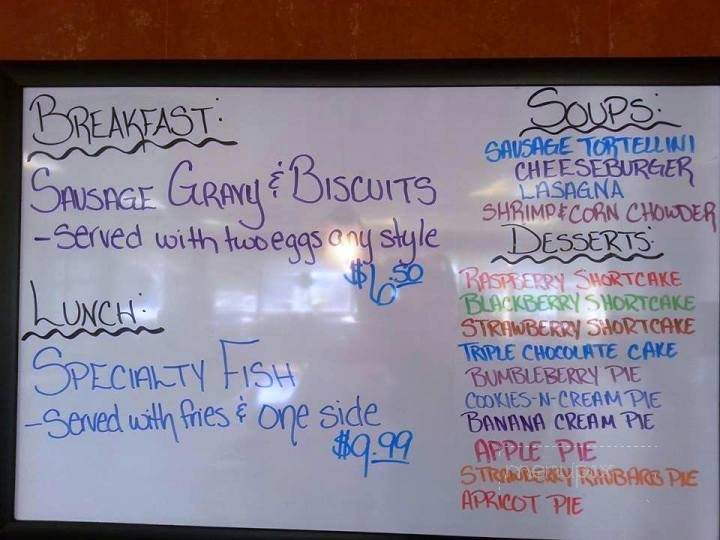 BREAKFAST:
SAUSAGE GRAVY & BISCUITS
-Served with two eggs any style
$6.50
LUNCH:
SPECIALTY FISH
-Served with fries & one side
$9.99
SOUPS:
SAUSAGE TORTELLINI
CHEESEBURGER
LASAGNA
SHRIMP & CORN CHOWDER
DESSERTS:
RASPBERRY SHORTCAKE
BLACKBERRY SHORTCAKE
STRAWBERRY SHORTCAKE
TRIPLE CHOCOLATE CAKE
BUMBLEBERRY PIE
COOKIES-N-CREAM PIE
BANANA CREAM PIE
APPLE PIE
STRAWBERRY RHUBARB PIE
APRICOT PIE